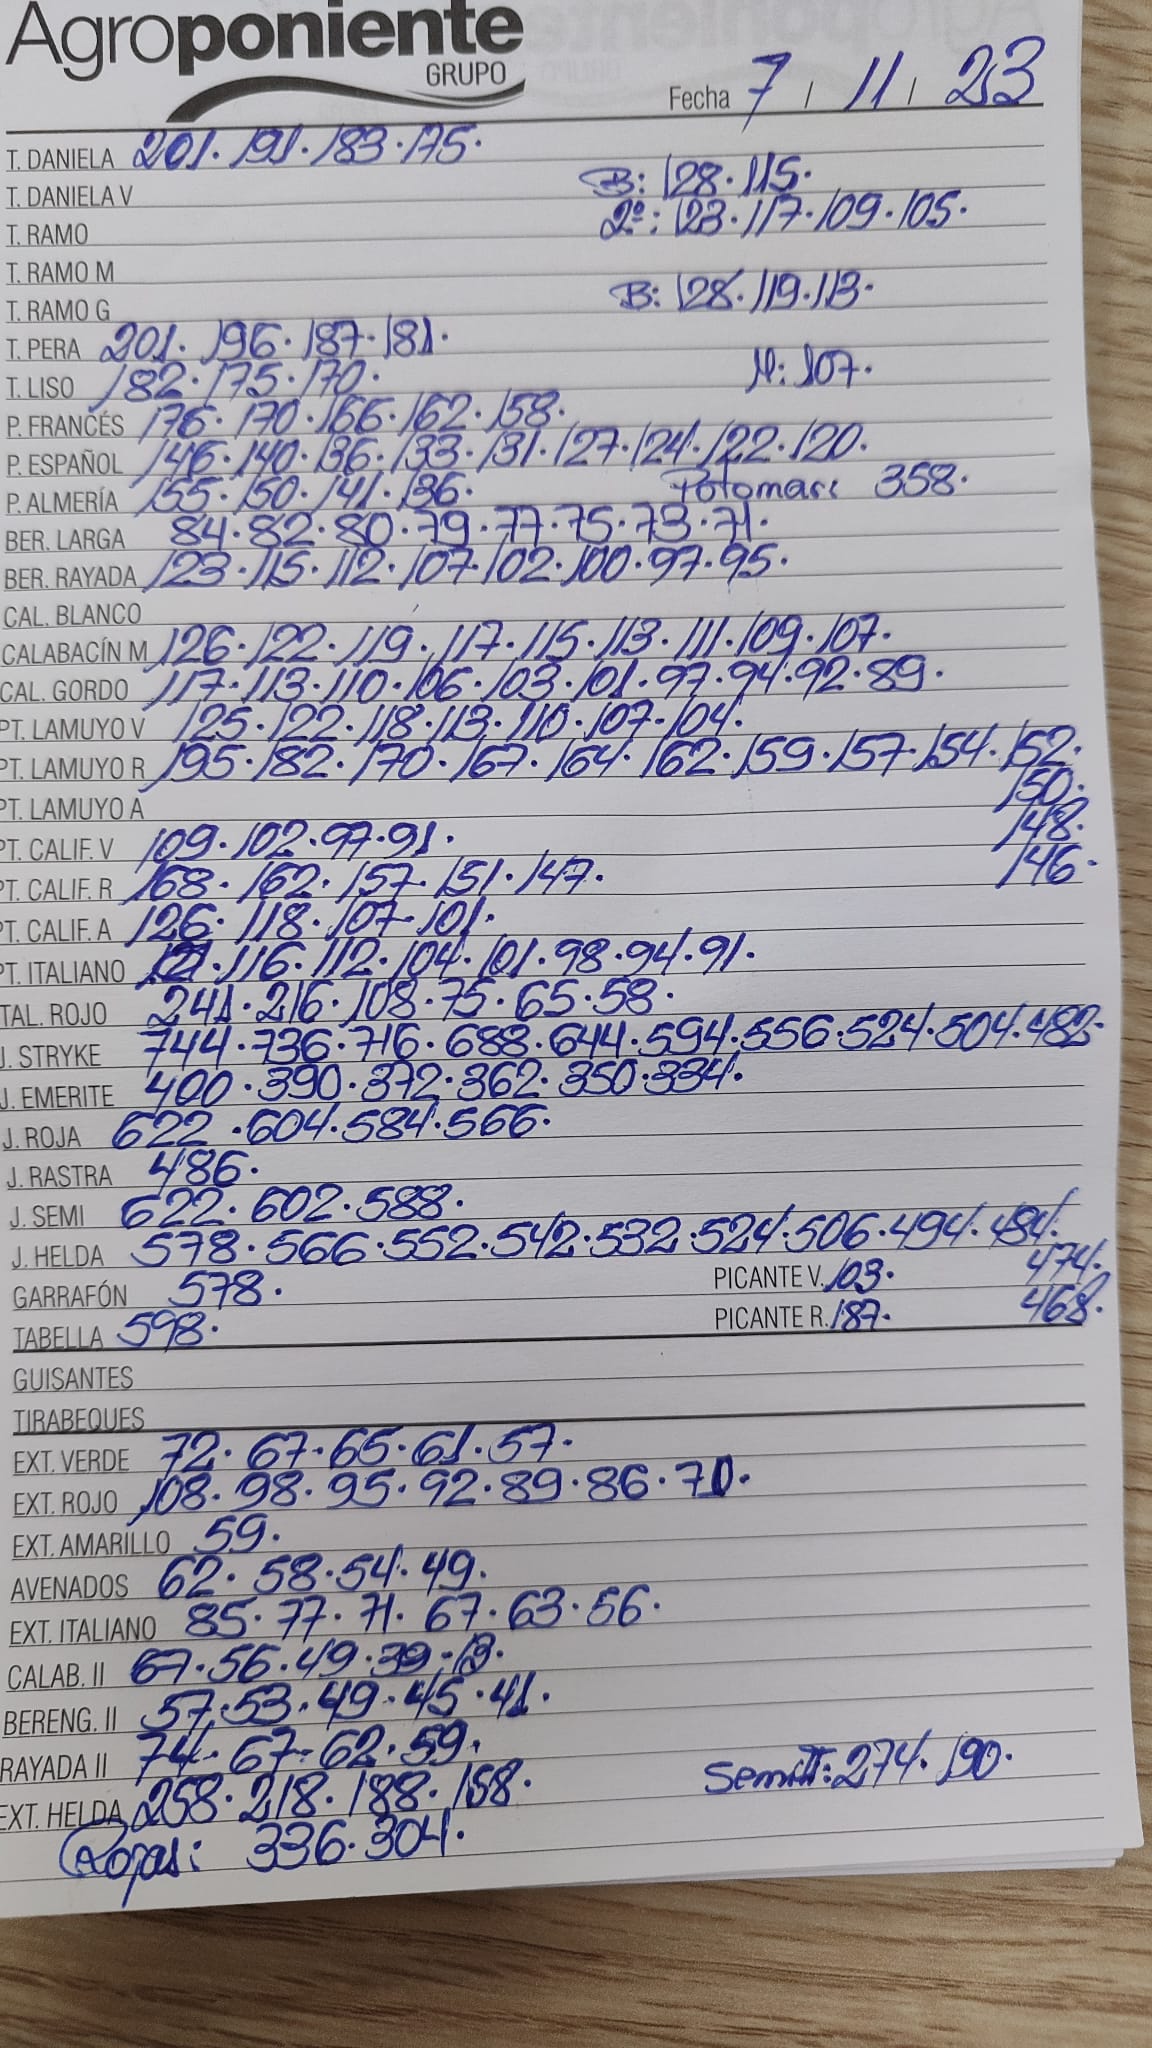 Agroponiente
GRUPO
Fecha 7 / 11 / 23
T. DANIELA 201. 191. 183. 175.
T. DANIELA V B: 128. 115.
T. RAMO 2º: 123. 117. 109. 105.
T. RAMO M
T. RAMO G B: 128. 119. 113.
T. PERA 201. 196. 187. 181.
T. LISO 182. 175. 170. M: 107.
P. FRANCÉS 176. 170. 166. 162. 158.
P. ESPAÑOL 146. 140. 136. 133. 131. 127. 124. 122. 120.
P. ALMERÍA 155. 150. 141. 136. Potomar: 358.
BER. LARGA 84. 82. 80. 79. 77. 75. 73. 71.
BER. RAYADA 123. 115. 112. 107. 102. 100. 97. 95.
CAL. BLANCO
CALABACÍN M 126. 122. 119. 117. 115. 113. 111. 109. 107.
CAL. GORDO 117. 113. 110. 106. 103. 101. 97. 94. 92. 89.
PT. LAMUYO V 125. 122. 118. 113. 110. 107. 104.
PT. LAMUYO R 195. 182. 170. 167. 164. 162. 159. 157. 154. 152.
PT. LAMUYO A 150.
PT. CALIF. V 109. 102. 97. 91. 148.
PT. CALIF. R 168. 162. 157. 151. 147. 146.
PT. CALIF. A 126. 118. 107. 101.
PT. ITALIANO 121. 116. 112. 104. 101. 98. 94. 91.
TAL. ROJO 241. 216. 108. 75. 65. 58.
J. STRYKE 744. 736. 716. 688. 644. 594. 556. 524. 504. 482.
J. EMERITE 400. 390. 372. 362. 350. 334.
J. ROJA 622. 604. 584. 566.
J. RASTRA 486.
J. SEMI 622. 602. 588.
J. HELDA 578. 566. 552. 542. 532. 524. 506. 494. 484.
GARRAFÓN 578. PICANTE V. 103. 474.
TABELLA 598. PICANTE R. 187. 468.
GUISANTES
TIRABEQUES
EXT. VERDE 72. 67. 65. 61. 57.
EXT. ROJO 108. 98. 95. 92. 89. 86. 70.
EXT. AMARILLO 59.
AVENADOS 62. 58. 54. 49.
EXT. ITALIANO 85. 77. 71. 67. 63. 56.
CALAB. II 67. 56. 49. 39. 13.
BERENG. II 57. 53. 49. 45. 41.
RAYADA II 74. 67. 62. 59.
EXT. HELDA 258. 218. 188. 158. Semi II: 274. 190.
Rojas: 336. 304.